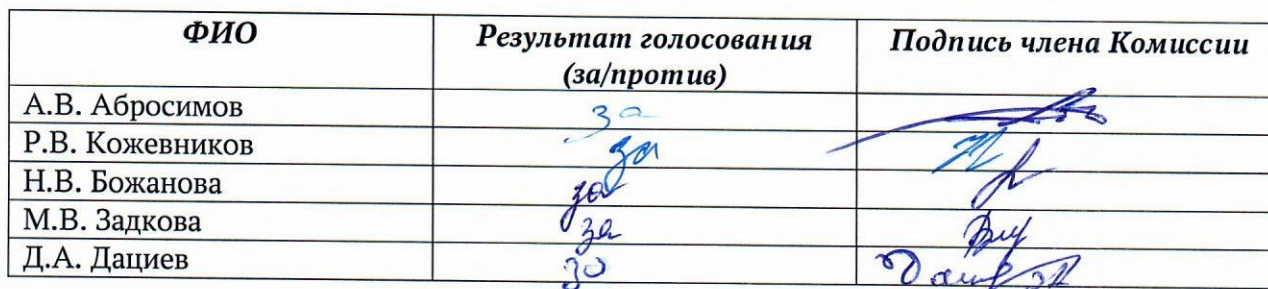 ФИО Результат голосования Подпись члена Комиссии
(за/против)
А.В. Абросимов за
Р.В. Кожевников за
Н.В. Божанова за
М.В. Задкова за
Д.А. Дациев за